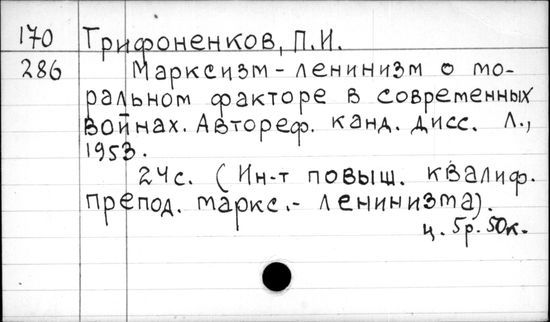 170 Трифоненков, П.И.
286 Марксизм-ленинизм о мо-
ральном факторе в современных
войнах. Автореф. канд. дисс. Л.,
1953.
24с. (Ин-т повыш. квалиф.
препод. маркс.- ленинизма).
ц. 5р. 50к.